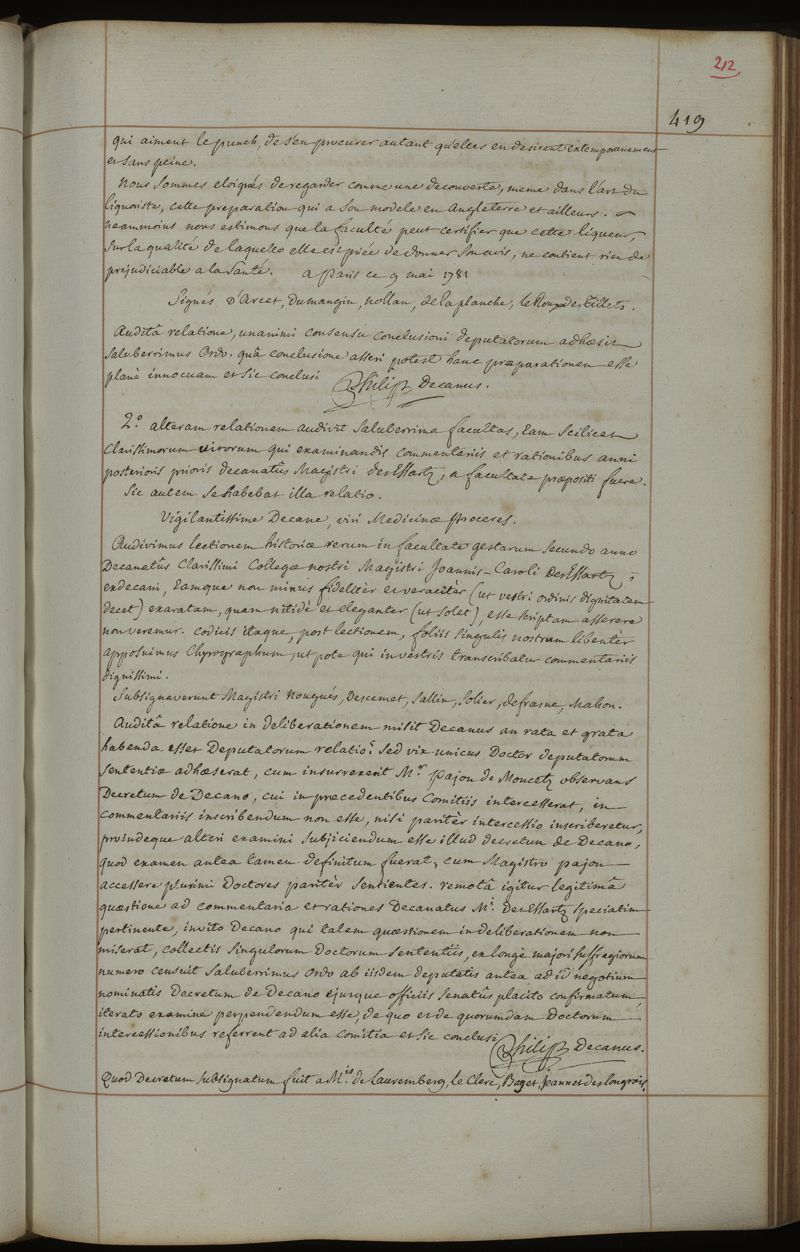 212
419
qui aiment le punch, de s'en procurer autant qu'elles en desirent extemporanement
et sans peine.
Nous sommes eloignés de regarder comme une decouverte, meme dans l'art du
liquoriste, cette preparation qui a son modele en Angleterre et ailleurs.
neammoins nous estimons que la faculté peut certifier que cette liqueur,
sur la qualité de laquelle elle est priée de donner son avis, ne contient rien de
prejudiciable a la santé. a Paris ce 9 mai 1781
Signés D'Arcet, Dumangin, Nollan, de la planche, le Roux des Tillets.
Auditâ relatione, unanimi consensu conclusioni deputatorum adhæsit
Saluberrimus Ordo. quâ conclusione asseri potest hanc præparationem esse
planè innocuam et sic conclusi Philip Decanus.
2.° alteram relationem audivit Saluberrima facultas, Eam Scilicet
Clarissimorum virorum qui examinandis Commentariis et rationibus anni
posterioris prioris decanatûs Magistri DesEssartz, a facultate præpositi fuere.
Sic autem se habebat illa relatio.
Vigilantissime Decane, viri Medicinæ Proceres.
Audivimus lectionem historiæ rerum in facultate gestarum secundo anno
Decanatûs Clarissimi Collegæ nostri Magistri Joannis-Caroli DesEssartz,
exdecani, Eamque non minus fidelitèr et veracitèr (ut vestri ordinis dignitatem
decet) exaratam, quam nitidè et eleganter (ut solet), esse scriptam asserere
non veremur. Codicis itaque, post lectionem, foliis singulis nostrum libentèr
apposuimus Chyrographum, ut pote qui in vestris transcribatur commentariis
dignissimi.
Subsignaverunt Magistri Nouguès, Descemet, Sallin, Solier, defrasne, Mahon.
Auditâ relatione in deliberationem misit Decanus an rata et grata
habenda esset Deputatorum relatio? Sed vix unicus Doctor deputatorum
Sententiæ adhæserat, cum insurrexerit M.r pajon de Moncetz observans
Decretum de Decano, cui in precedentibus Comitiis intercesserat, in
Commentariis inscribendum non esse, nisi paritèr intercessio inscriberetur,
proindeque alteri examini subjiciendum esse illud decretum de Decano,
quod examen antea tamen definitum fuerat, cum Magistro pajon
accessere plurimi Doctores paritèr sentientes. remotâ igitur legitimâ
quæstione ad commentaria et rationes Decanatus M.i DesEssartz speciatim
pertinente, invito Decano qui talem quæstionem in deliberationem non
miserat, collectis singulorum Doctorum sententiis, ex longè majori suffragiorum
numero censuit Saluberrimus Ordo ab iisdem deputatis antea ad id negotium
nominatis Decretum de Decano ejusque officiis Senatûs placito confirmatum,
iterato examine perpendendum esse, de quo et de quorumdam Doctorum
intercessionibus referrent ad alia Comitia et sic conclusi Philip Decanus.
Quod Decretum subsignatum fuit a M.is de Lauremberg, le Clerc, Baget, Jeannet des longrois.